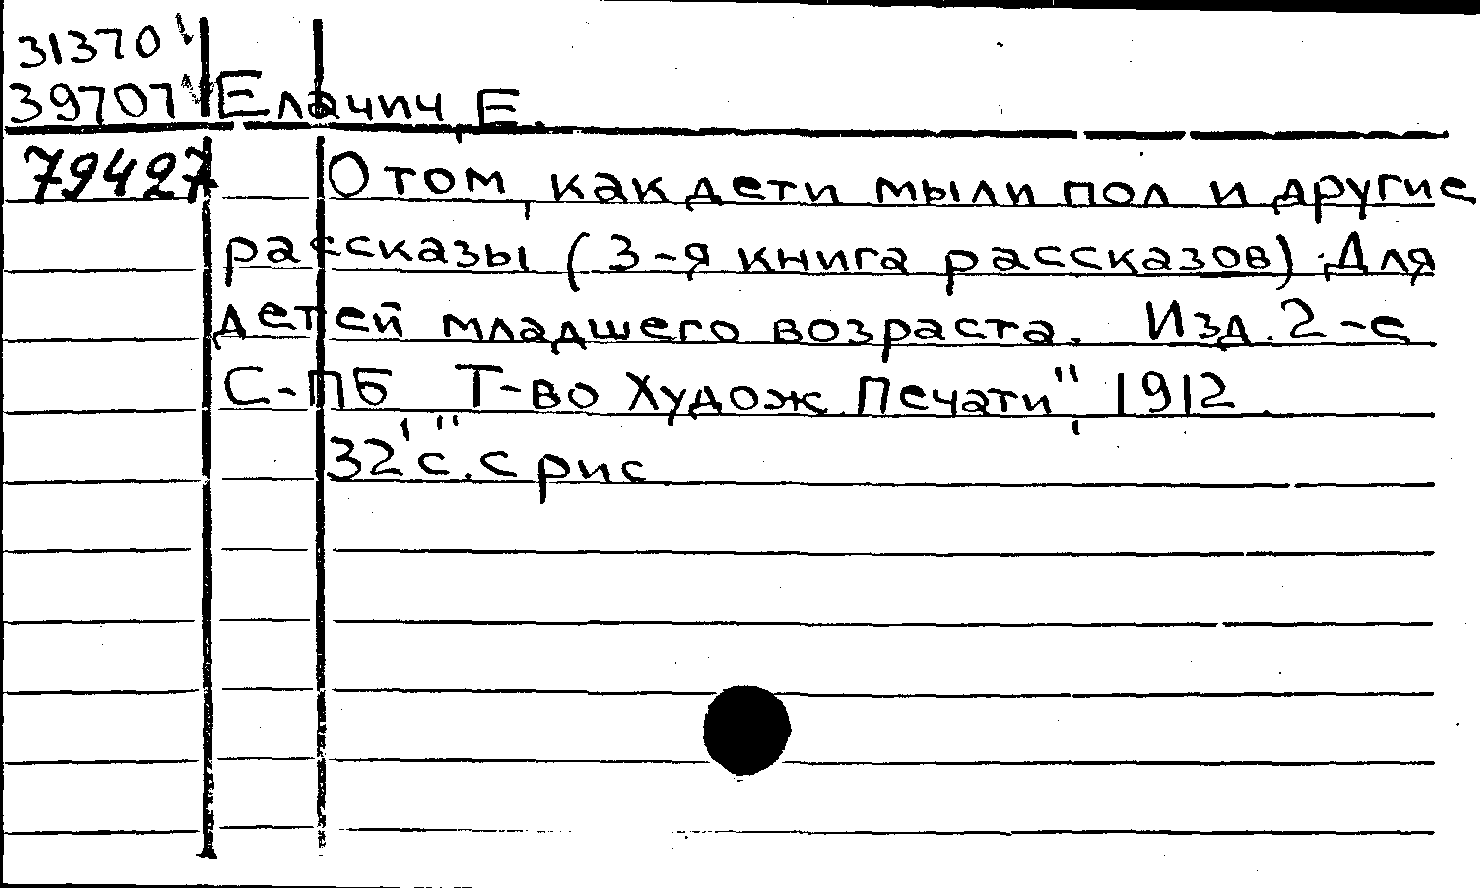 31370
39707 Елачич, Е.
79427 О том, как дети мыли пол и другие
рассказы (3-я книга рассказов). Для
детей младшего возраста. Изд. 2-е
С-ПБ, "Т-во Худож. Печати", 1912.
32 с. с рис